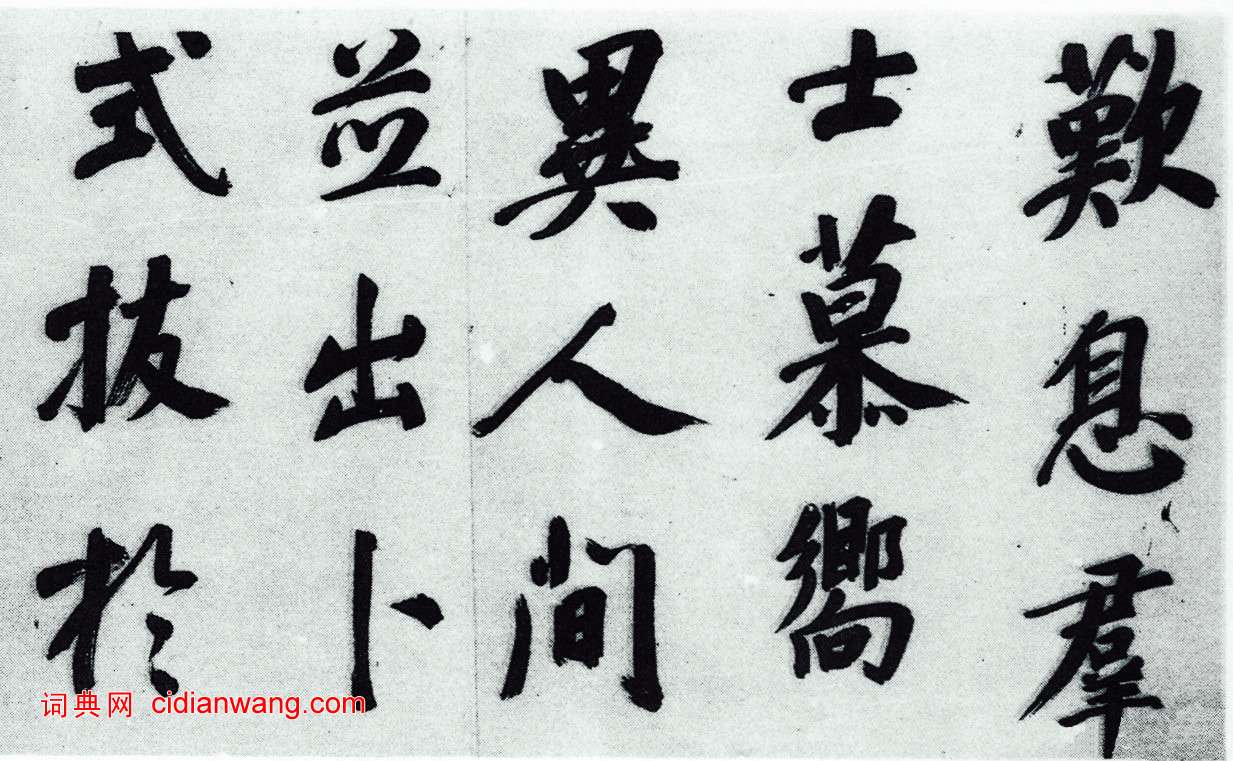 歎息羣
士慕嚮
異人間
並出卜
式拔於
词典网 cidianwang.com